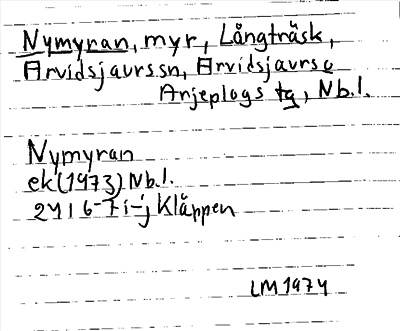 Nymyran, myr, Långträsk,
Arvidsjaurs sn, Arvidsjaurs o
Arjeplogs tg, Nb.l.
Nymyran
ek (1973) Nb.l.
24I 6-7i-j Kläppen
LM 1974